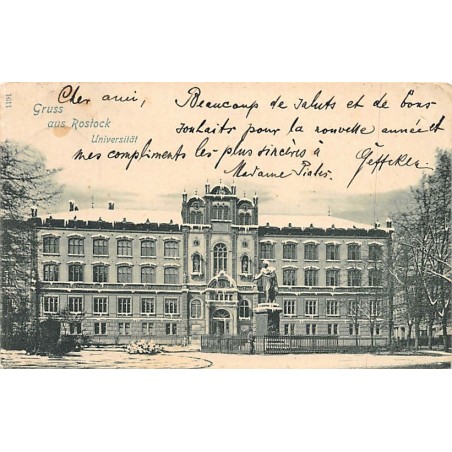 1191
Gruss
aus Rostock
Universität
Cher ami,
Beaucoup de saluts et de bons
souhaits pour la nouvelle année et
mes compliments les plus sincères à
Madame
Geffcken